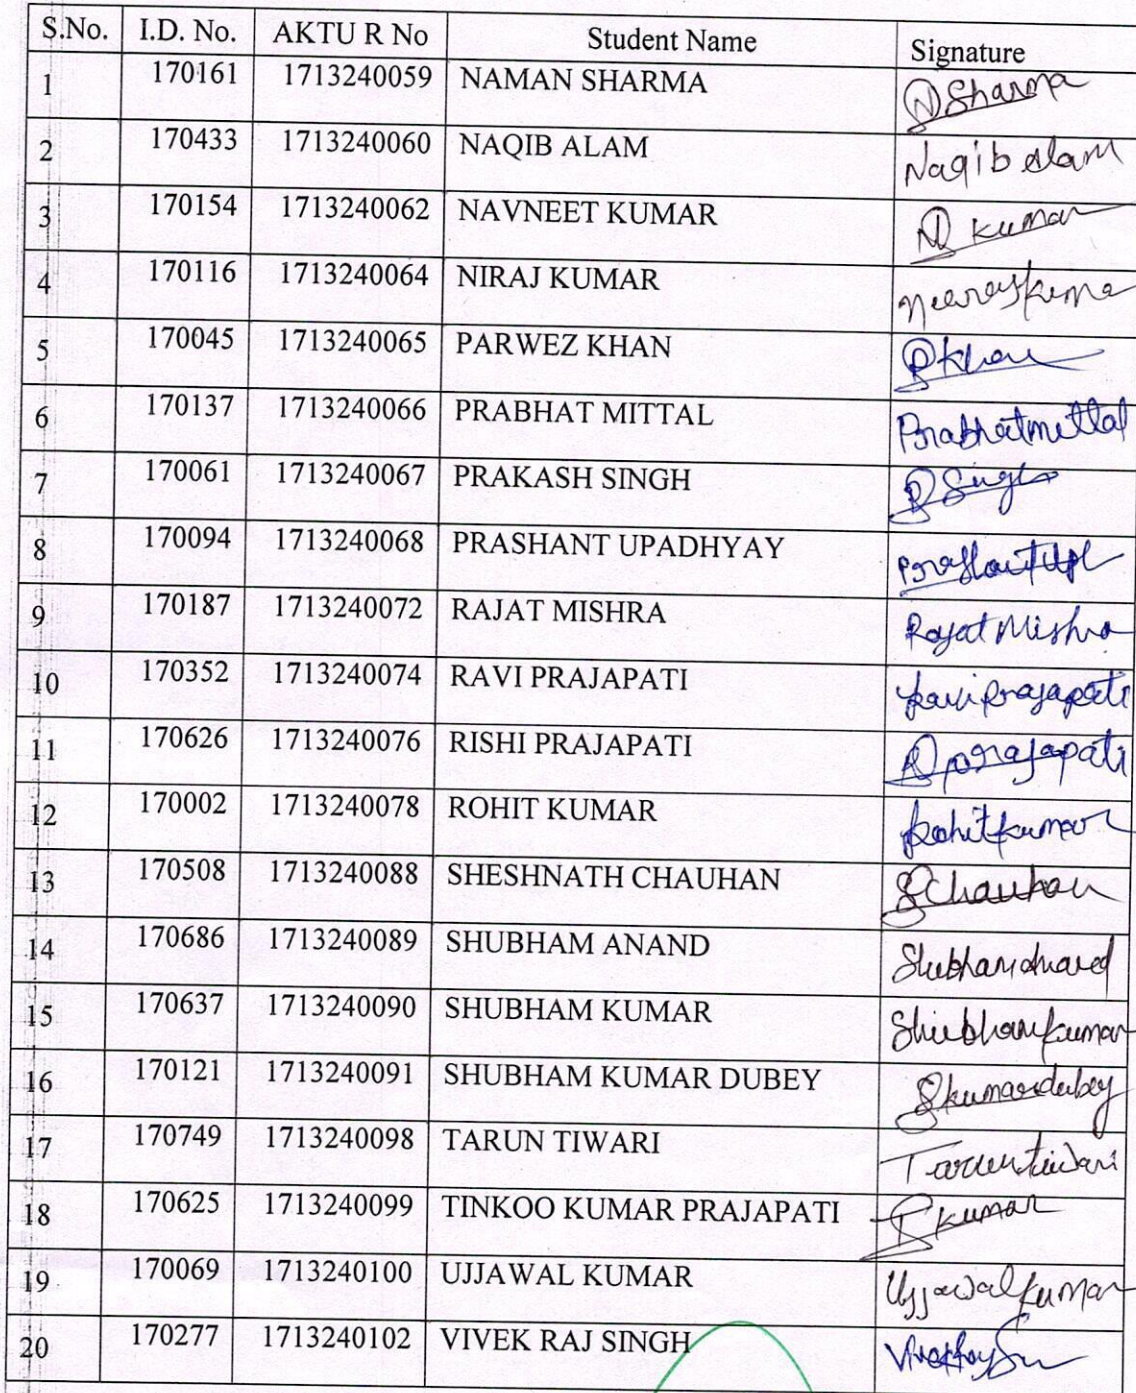 S.No. I.D. No. AKTU R No Student Name Signature
1 170161 1713240059 NAMAN SHARMA N Sharma
2 170433 1713240060 NAQIB ALAM Naqib alam
3 170154 1713240062 NAVNEET KUMAR N kumar
4 170116 1713240064 NIRAJ KUMAR
5 170045 1713240065 PARWEZ KHAN P khan
6 170137 1713240066 PRABHAT MITTAL Prabhat mittal
7 170061 1713240067 PRAKASH SINGH P Singh
8 170094 1713240068 PRASHANT UPADHYAY
9 170187 1713240072 RAJAT MISHRA Rajat Mishra
10 170352 1713240074 RAVI PRAJAPATI Ravi prajapati
11 170626 1713240076 RISHI PRAJAPATI R prajapati
12 170002 1713240078 ROHIT KUMAR Rohit kumar
13 170508 1713240088 SHESHNATH CHAUHAN S Chauhan
14 170686 1713240089 SHUBHAM ANAND Shubham anand
15 170637 1713240090 SHUBHAM KUMAR Shubham kumar
16 170121 1713240091 SHUBHAM KUMAR DUBEY S kumar dubey
17 170749 1713240098 TARUN TIWARI Tarun tiwari
18 170625 1713240099 TINKOO KUMAR PRAJAPATI T kumar
19 170069 1713240100 UJJAWAL KUMAR Ujjawal kumar
20 170277 1713240102 VIVEK RAJ SINGH